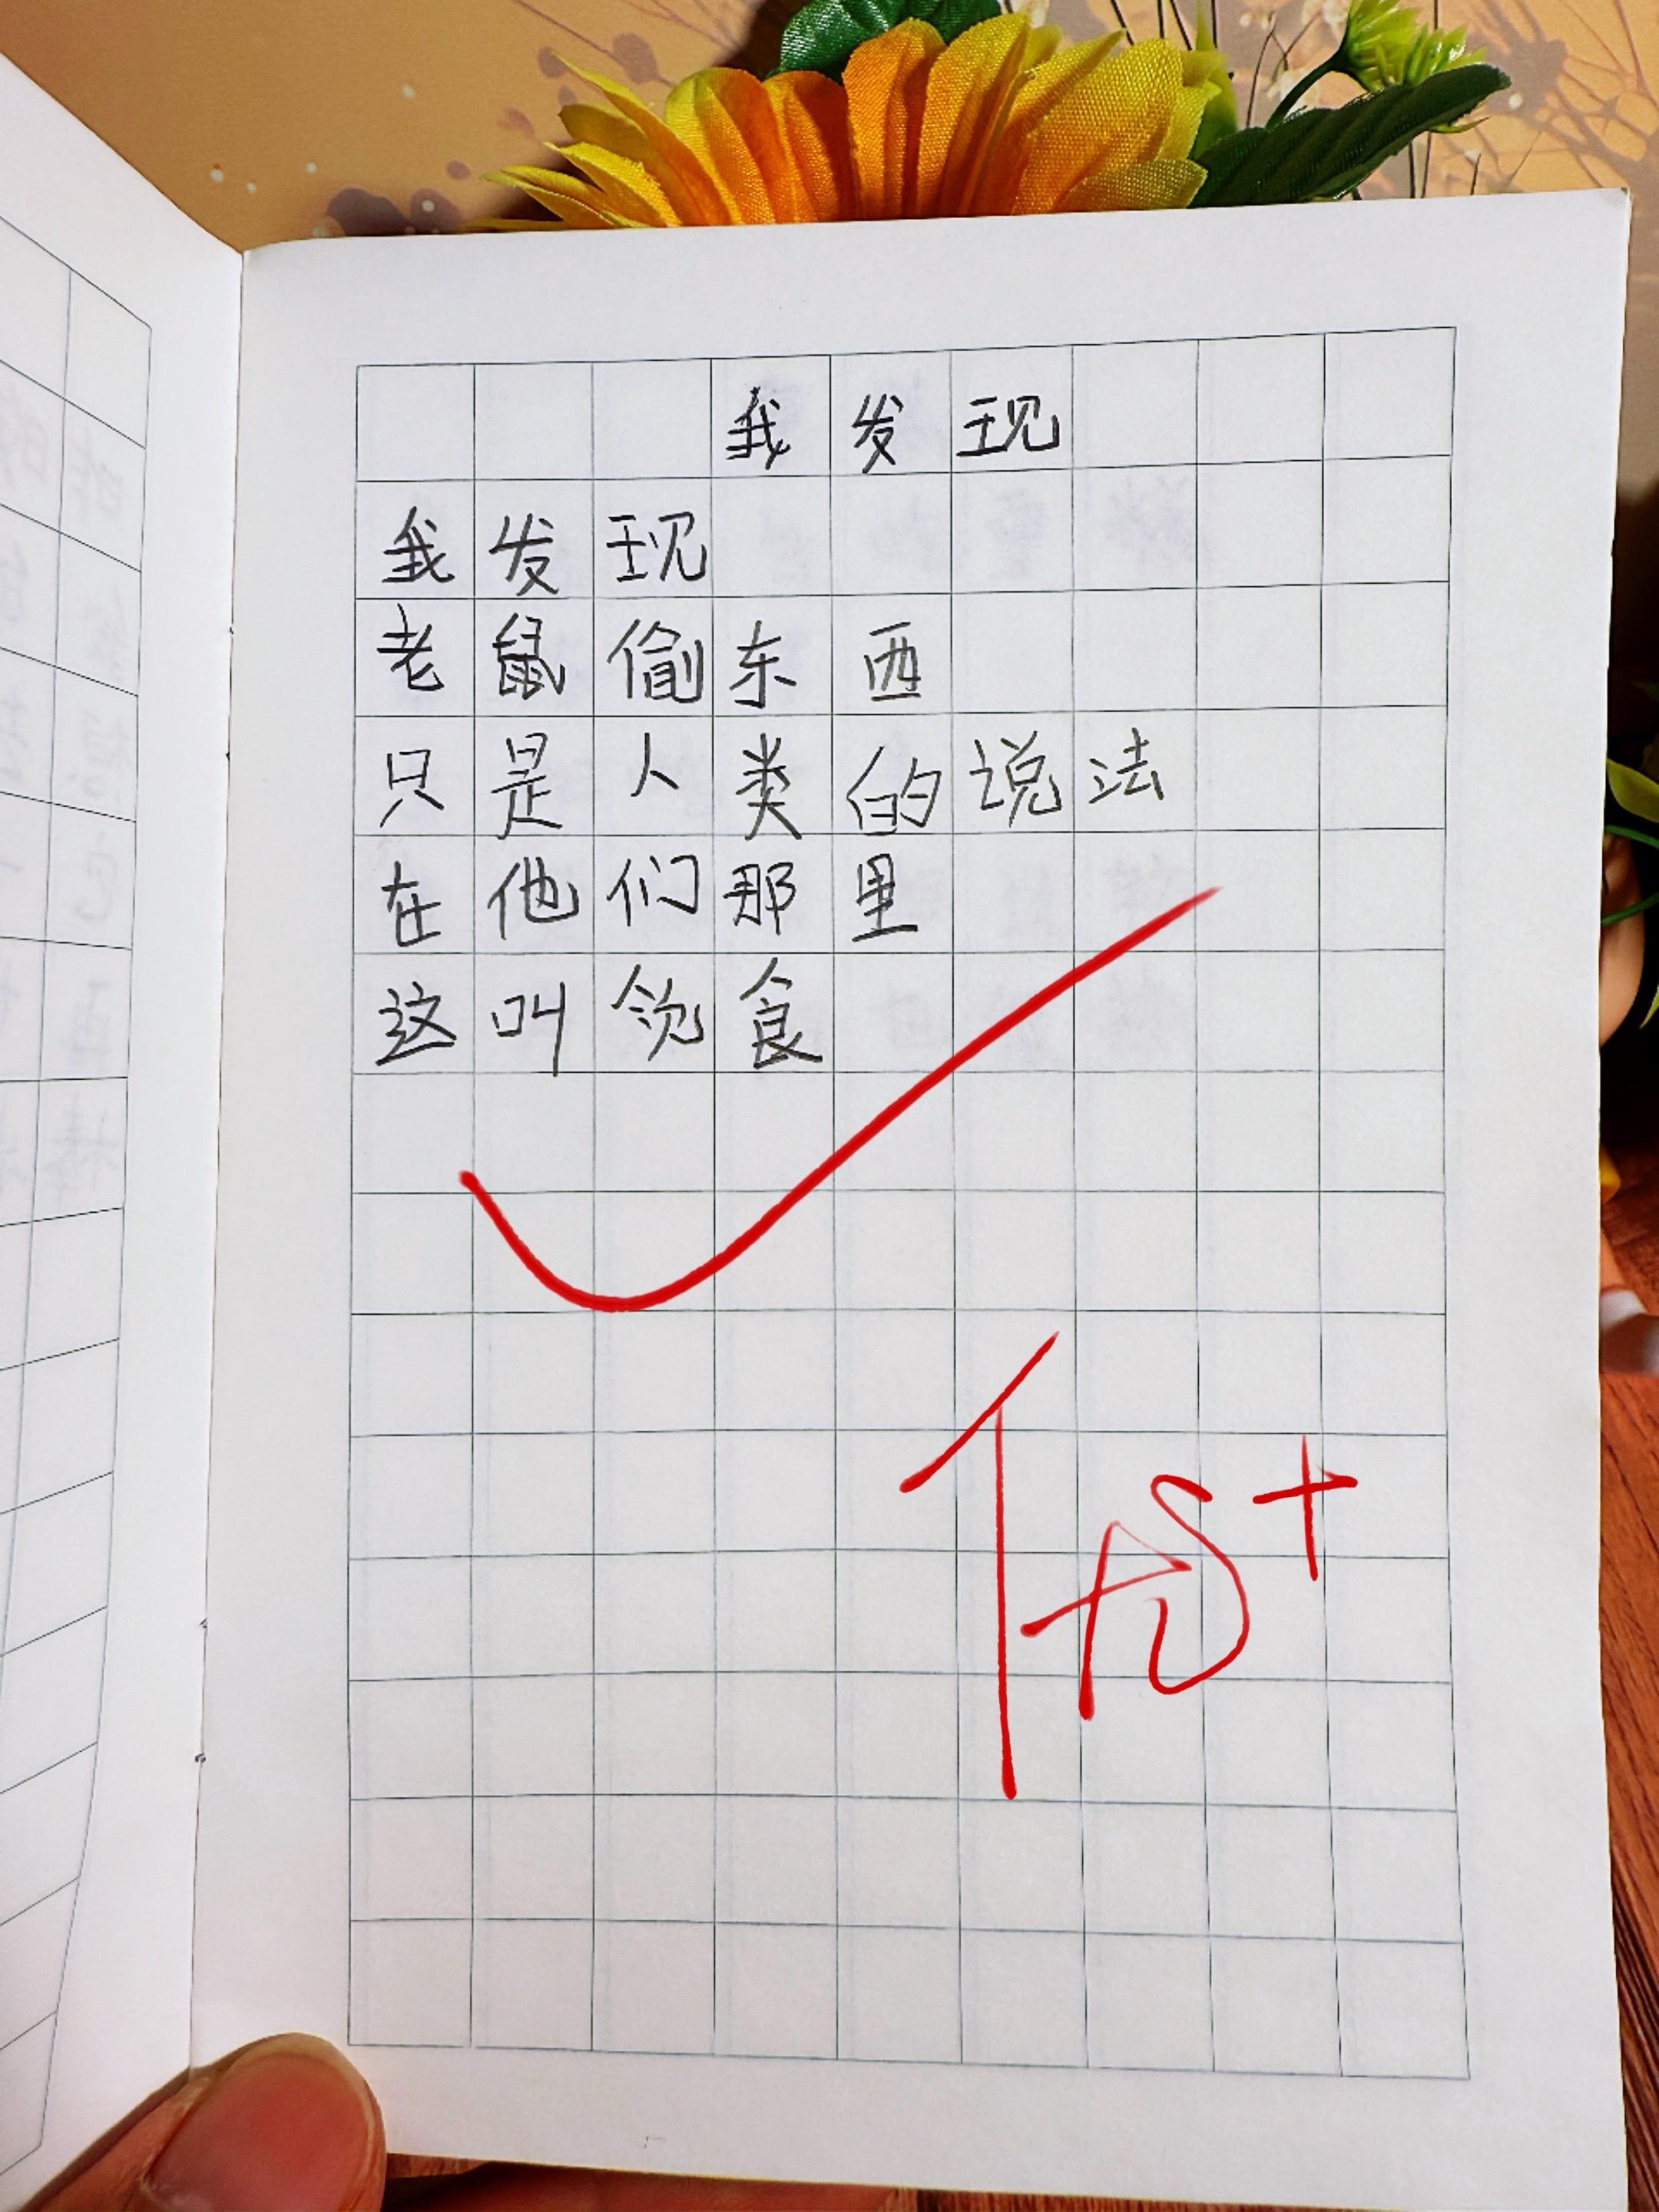 我发现
我发现
老鼠偷东西
只是人类的说法
在他们那里
这叫饮食
优+